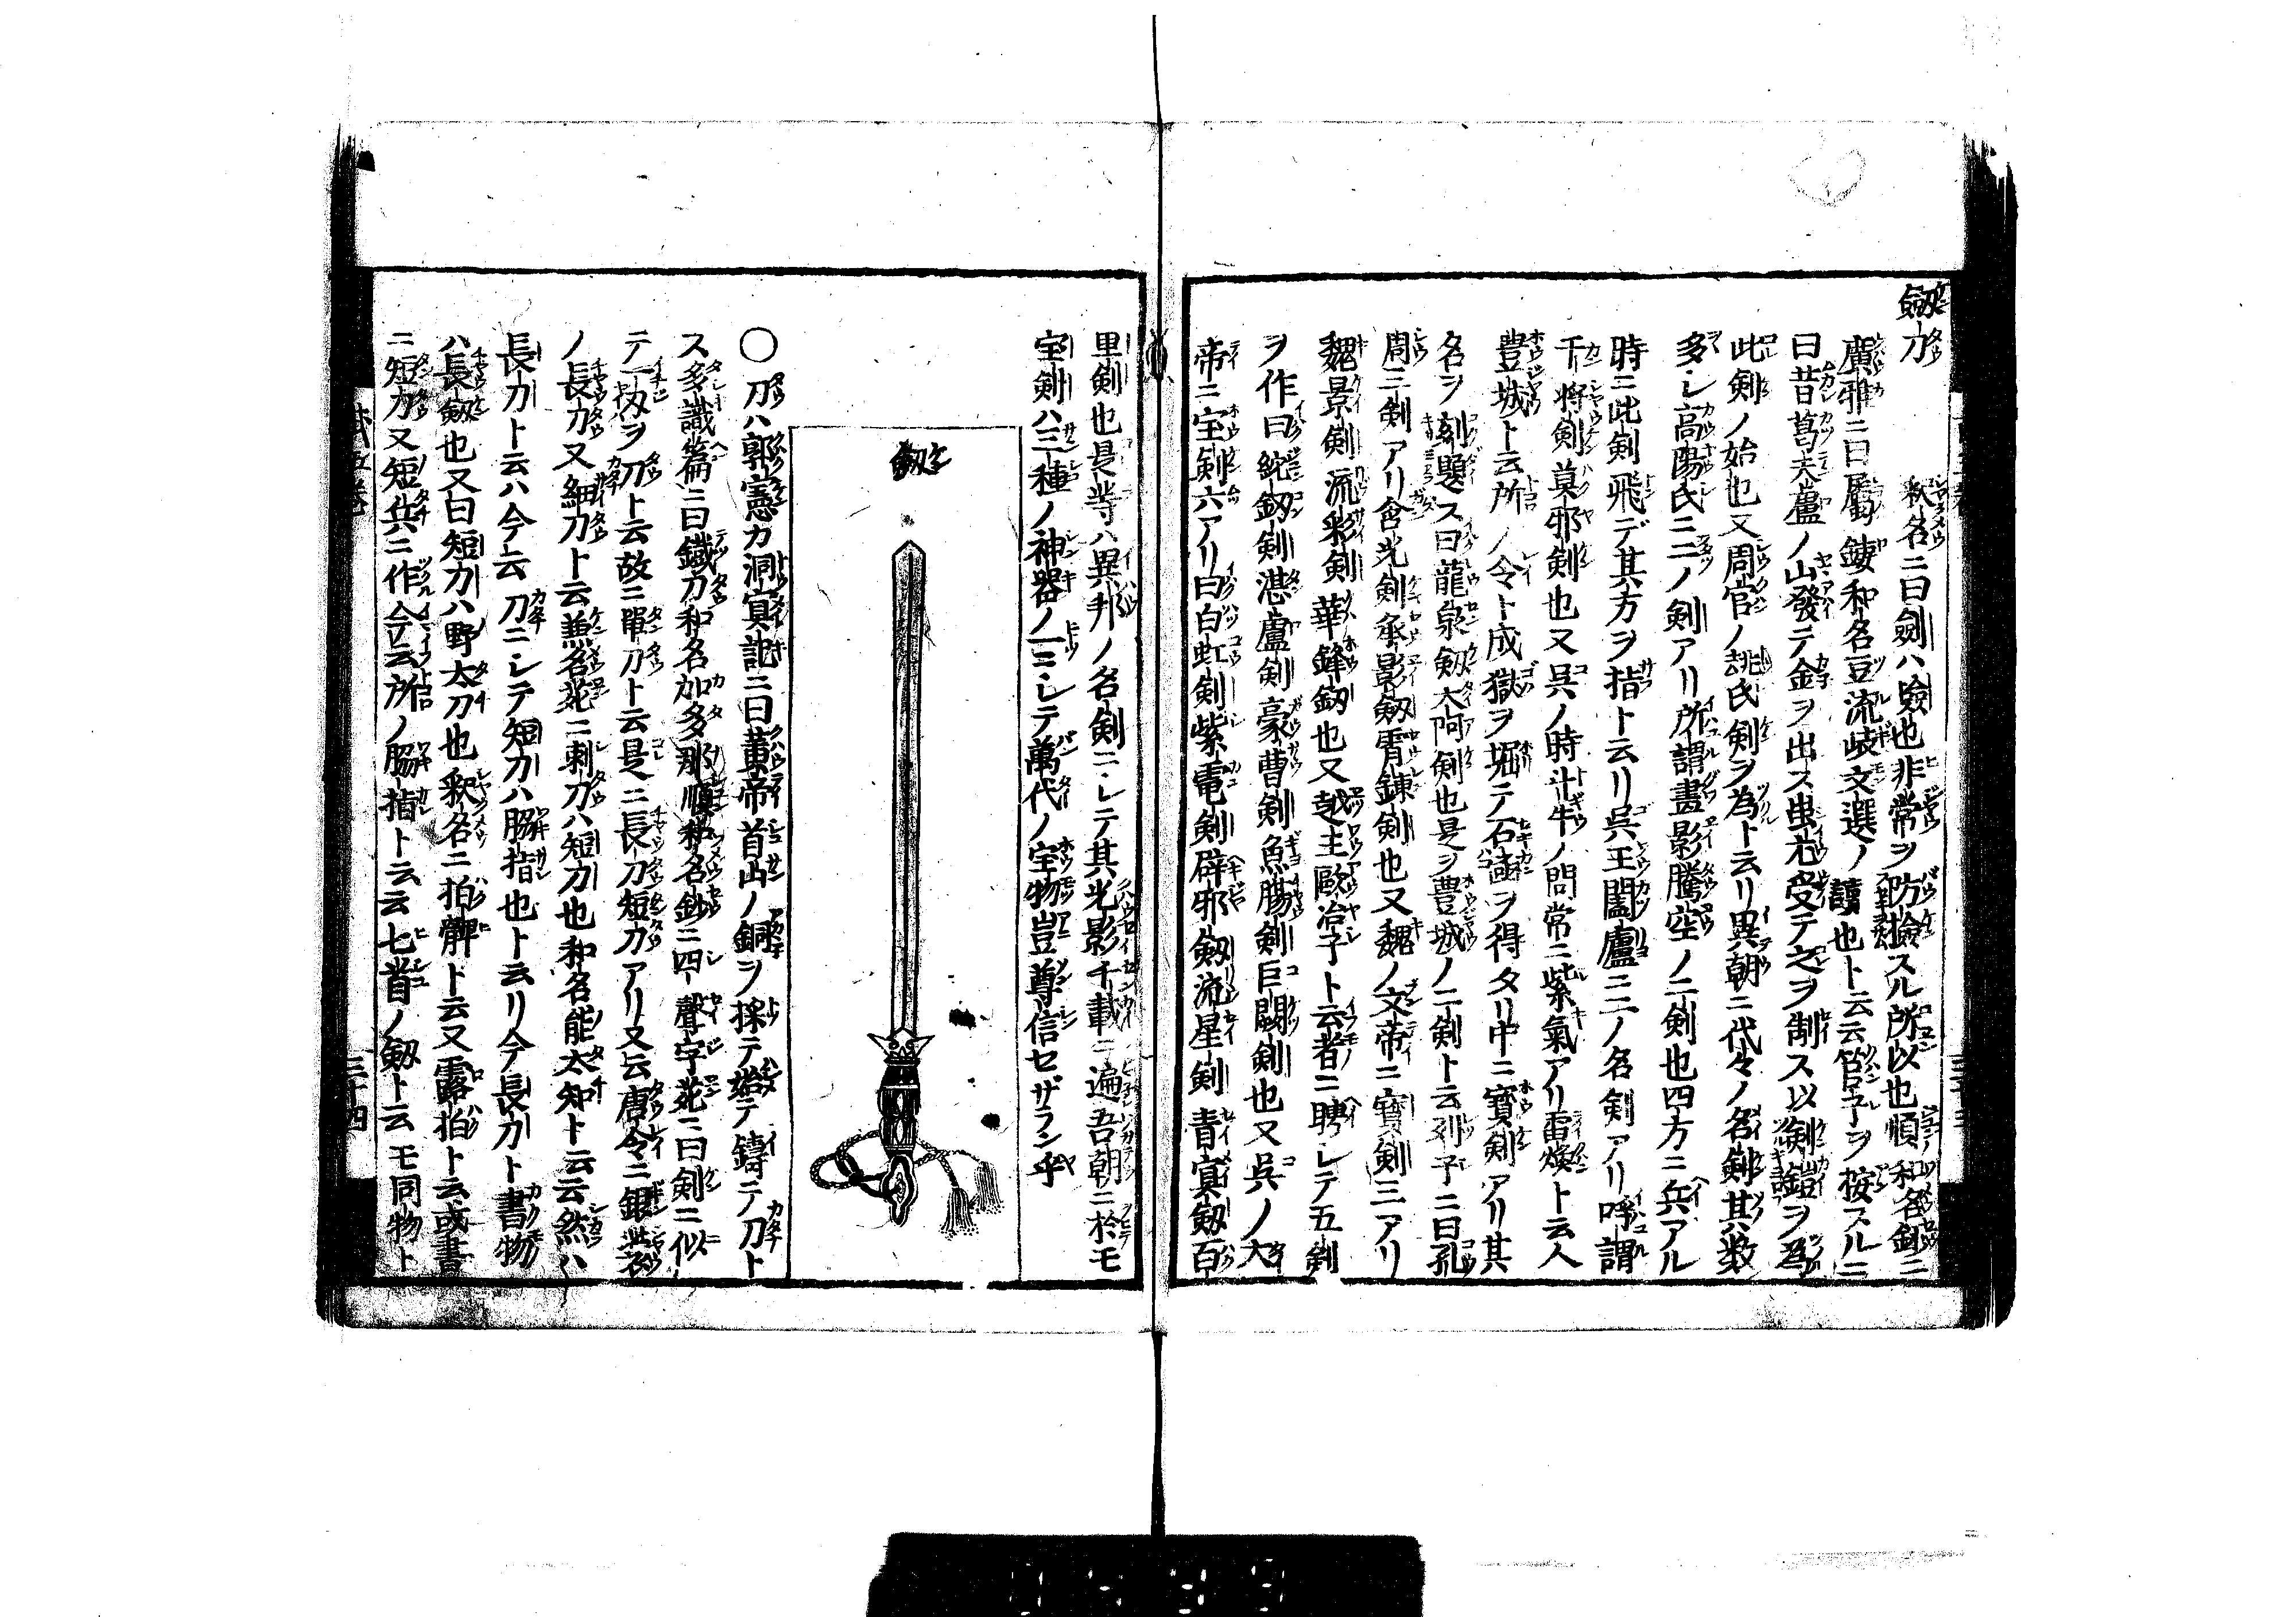 劔刀
釈名ニ曰劍ハ險也非常ヲ防撿スル所以也順和名鈔ニ
廣雅ニ曰屬鏤和名豆流岐文選ノ讀也ト云云管子ヲ按スルニ
曰昔葛天盧ノ山發テ金ヲ出ス蚩尤受テ之ヲ制ス以剣鎧ヲ為
此剣ノ始也又周官ノ桃氏剣ヲ為ト云リ異朝ニ代々ノ名剣其数
多シ高陽氏ニ二ノ剣アリ所謂畫影騰空ノ二剣也四方ニ兵アル
時ニ此剣飛デ其方ヲ指ト云リ呉王闔廬ニ二ノ名剣アリ呼謂
干将剣莫邪剣也又呉ノ時斗牛ノ間常ニ紫氣アリ雷煥ト云人
豊城ト云所ノ令ト成獄ヲ堀テ石凾ヲ得タリ中ニ寳剣アリ其
名ヲ刻題ス曰龍泉劔太阿剣也是ヲ豊城ノ二剣ト云列子ニ曰孔
周三剣アリ含光剣承影劔霄錬剣也又魏ノ文帝ニ寳剣三アリ
魏景剣流彩剣華鋒劔也又越王歐冶子ト云者ニ聘シテ五剣
ヲ作曰純鈎剣湛盧剣豪曹剣魚腸剣巨闕剣也又呉ノ大
帝ニ宝剣六アリ曰白虹剣紫電剣辟邪劔流星剣青冥劔百
里剣也是等ハ異邦ノ名剣ニシテ其光影千載ニ遍吾朝ニ於モ
宝剣ハ三種ノ神器ノ一ニシテ萬代ノ宝物豈尊信セザラン乎
劔
〇刀ハ郭憲カ洞冥記ニ曰黄帝首山ノ銅ヲ採テ始テ鑄テ刀ト
ス多識篇ニ曰鐵刀和名加多那順和名鈔ニ四聲字苑ニ曰剣ニ似
テ一刄ヲ刀ト云故ニ單刀ト云是ニ長刀短刀アリ又云唐令ニ銀装
ノ長刀又細刀ト云兼名苑ニ刺刀ハ短刀也和名能太知ト云云然ハ
長刀ト云ハ今云刀ニシテ短刀ハ脇指也ト云リ今長刀ト書物
ハ長劔也又曰短刀ハ野太刀也釈名ニ拍髀ト云又露拍ト云或書
ニ短刀又短兵ニ作今云所ノ脇指ト云云七首ノ劔ト云モ同物ト
三十四